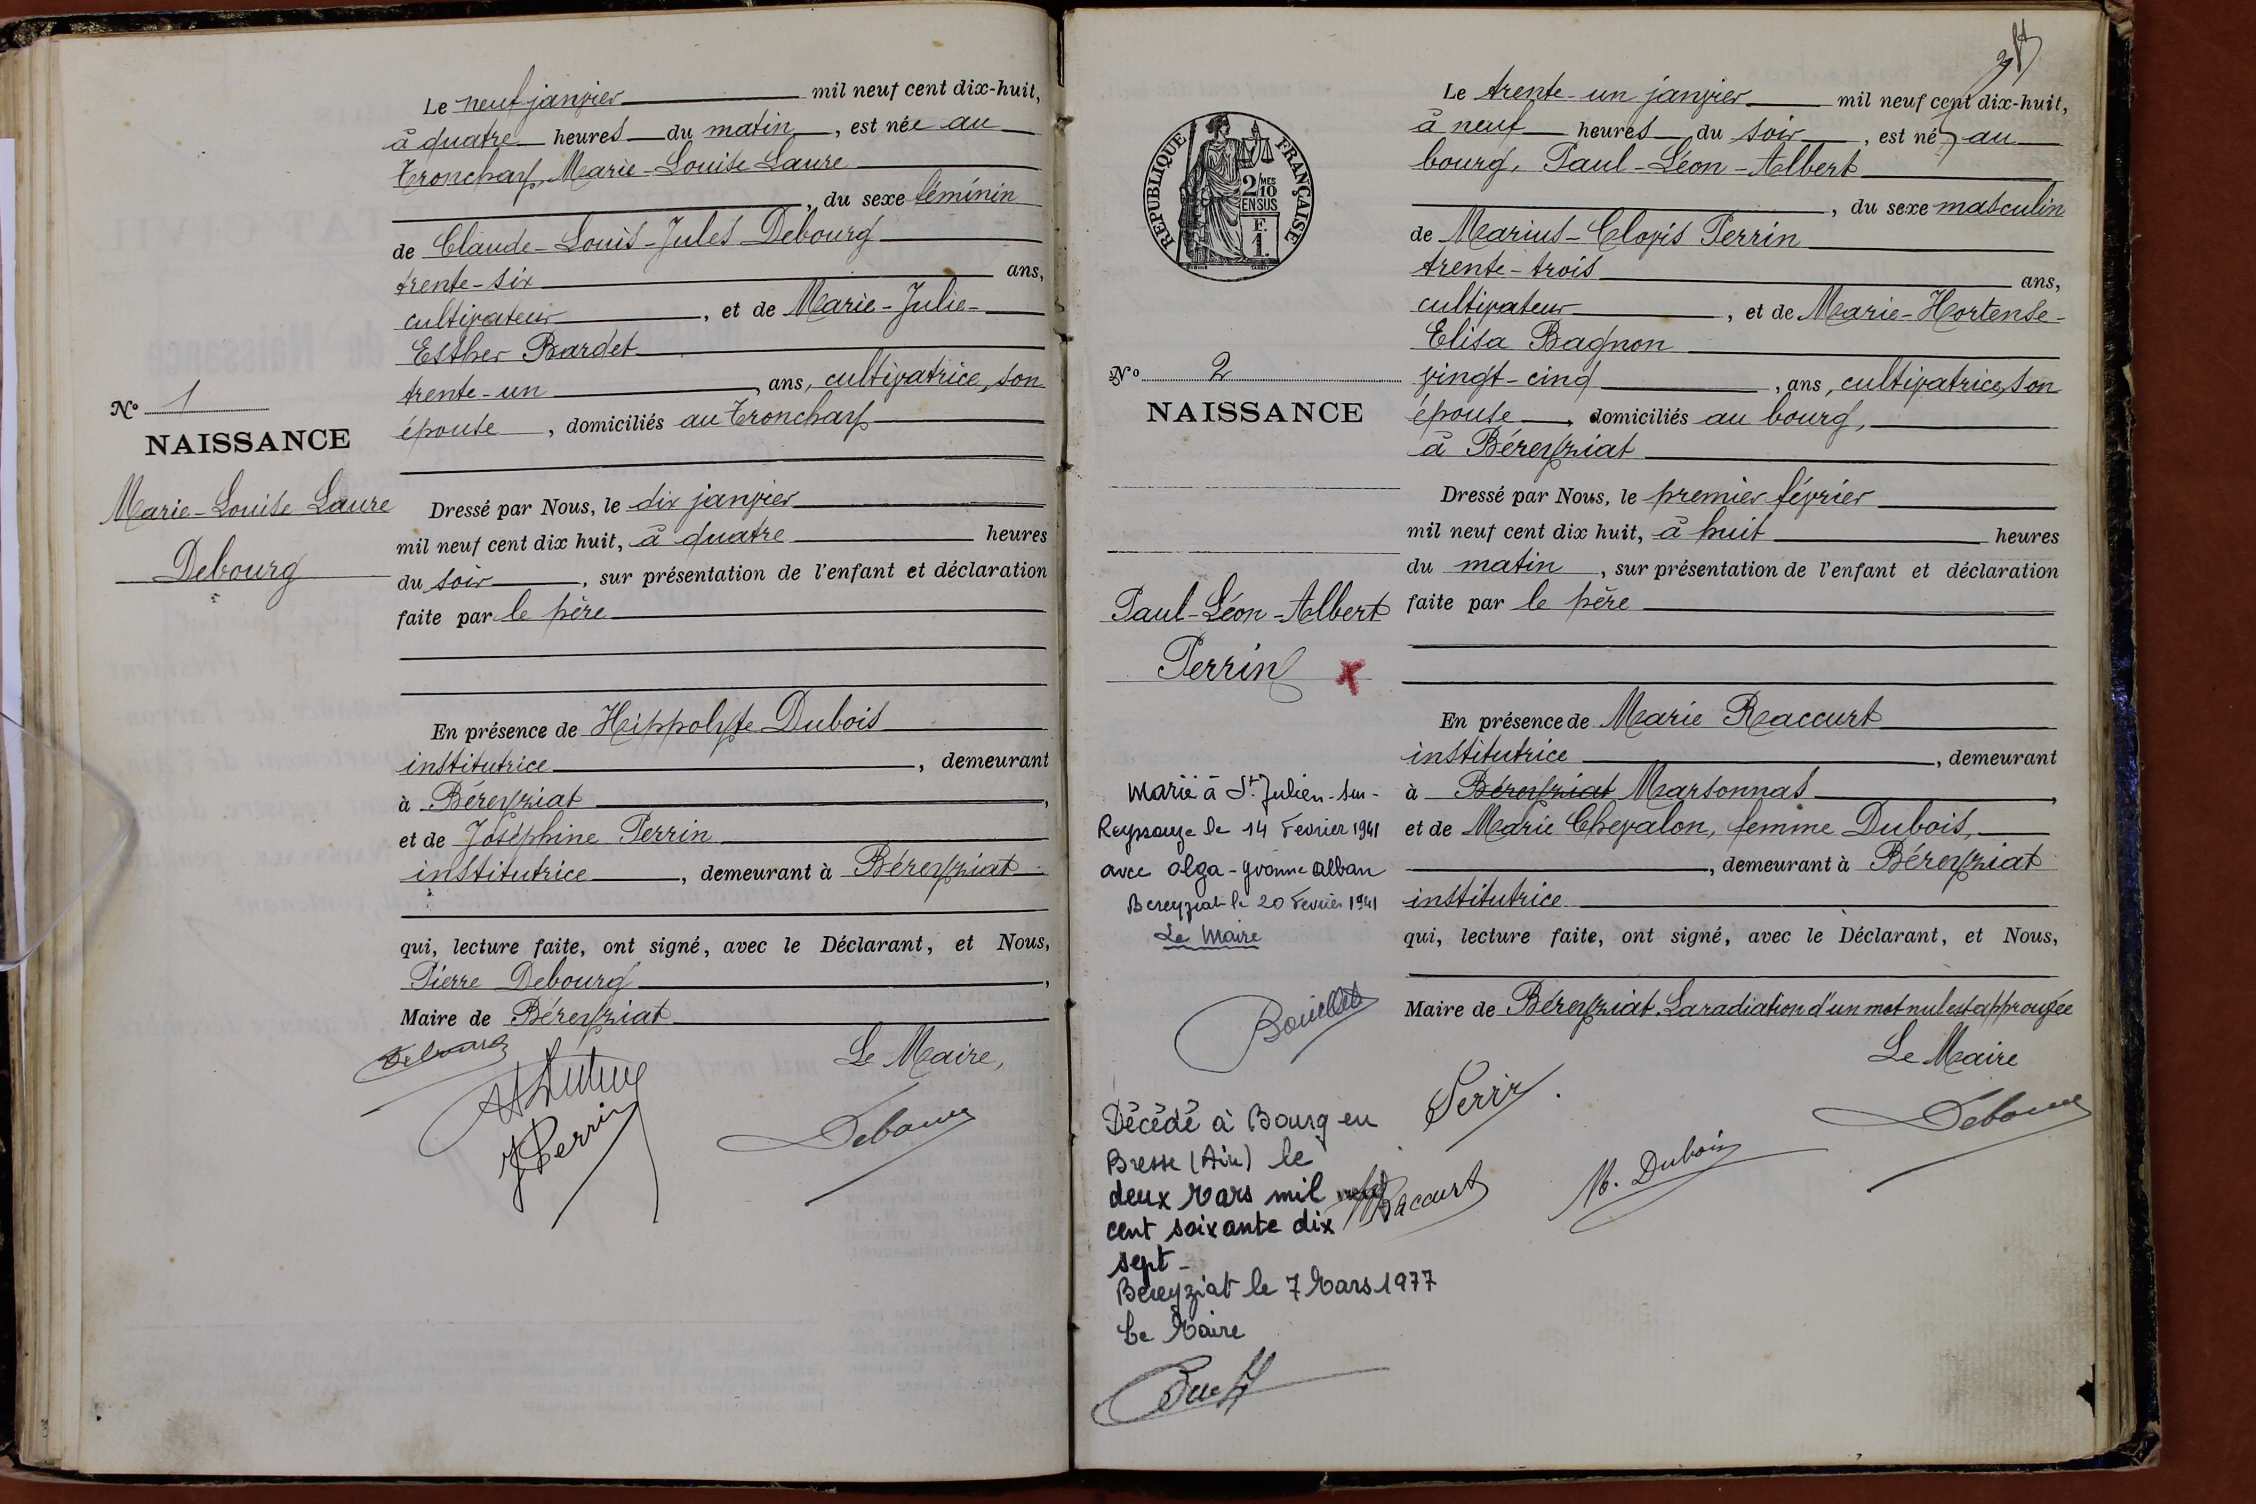 Le neuf janvier mil neuf cent dix-huit,
à quatre heures du matin, est née au
Tronchay, Marie-Louise Laure
, du sexe féminin
de Claude-Louis-Jules Debourg
trente-six ans,
cultivateur, et de Marie-Julie-
Esther Bardet
trente-un, ans, cultivatrice, son
épouse, domiciliés au Tronchay
No 1
NAISSANCE
Marie-Louise Laure
Debourg
Dressé par Nous, le dix janvier
mil neuf cent dix huit, à quatre heures
du soir, sur présentation de l'enfant et déclaration
faite par le père
En présence de Hippolyte Dubois
institutrice, demeurant
à Béreyziat,
et de Joséphine Perrin
institutrice, demeurant à Béreyziat
qui, lecture faite, ont signé, avec le Déclarant, et Nous,
Pierre Debourg,
Maire de Béreyziat
Le Maire,
Debourg
J Perrin
Debourg
Le trente-un janvier mil neuf cent dix-huit,
à neuf heures du soir, est né au
bourg, Paul-Léon-Albert
, du sexe masculin
de Marius-Clovis Perrin
trente-trois ans,
cultivateur, et de Marie-Hortense-
Elisa Bagnon
vingt-cinq, ans, cultivatrice, son
épouse, domiciliés au bourg,
à Béreyziat
REPUBLIQUE FRANÇAISE
2/MES
10
EN SUS
F.
1.
No 2
NAISSANCE
Paul-Léon-Albert
Perrin x
Dressé par Nous, le premier février
mil neuf cent dix huit, à huit heures
du matin, sur présentation de l'enfant et déclaration
faite par le père
En présence de Marie Raccurt
institutrice, demeurant
à Béreyziat Marsonnas,
et de Marie Chevalon, femme Dubois,
, demeurant à Béreyziat
institutrice
qui, lecture faite, ont signé, avec le Déclarant, et Nous,
Maire de Béreyziat. La radiation d'un mot nul est approuvée
Le Maire
Debourg
Perrin.
M. Dubois
M Raccurt
Marié à St. Julien-sur-
Reyssouze le 14 Fevrier 1941
avec Olga-Yvonne Alban
Bereyziat le 20 Fevrier 1941
Le Maire
Décédé à Bourg en
Bresse (Ain) le
deux Mars mil neuf
cent soixante dix
sept-
Bereyziat le 7 Mars 1977
Le Maire